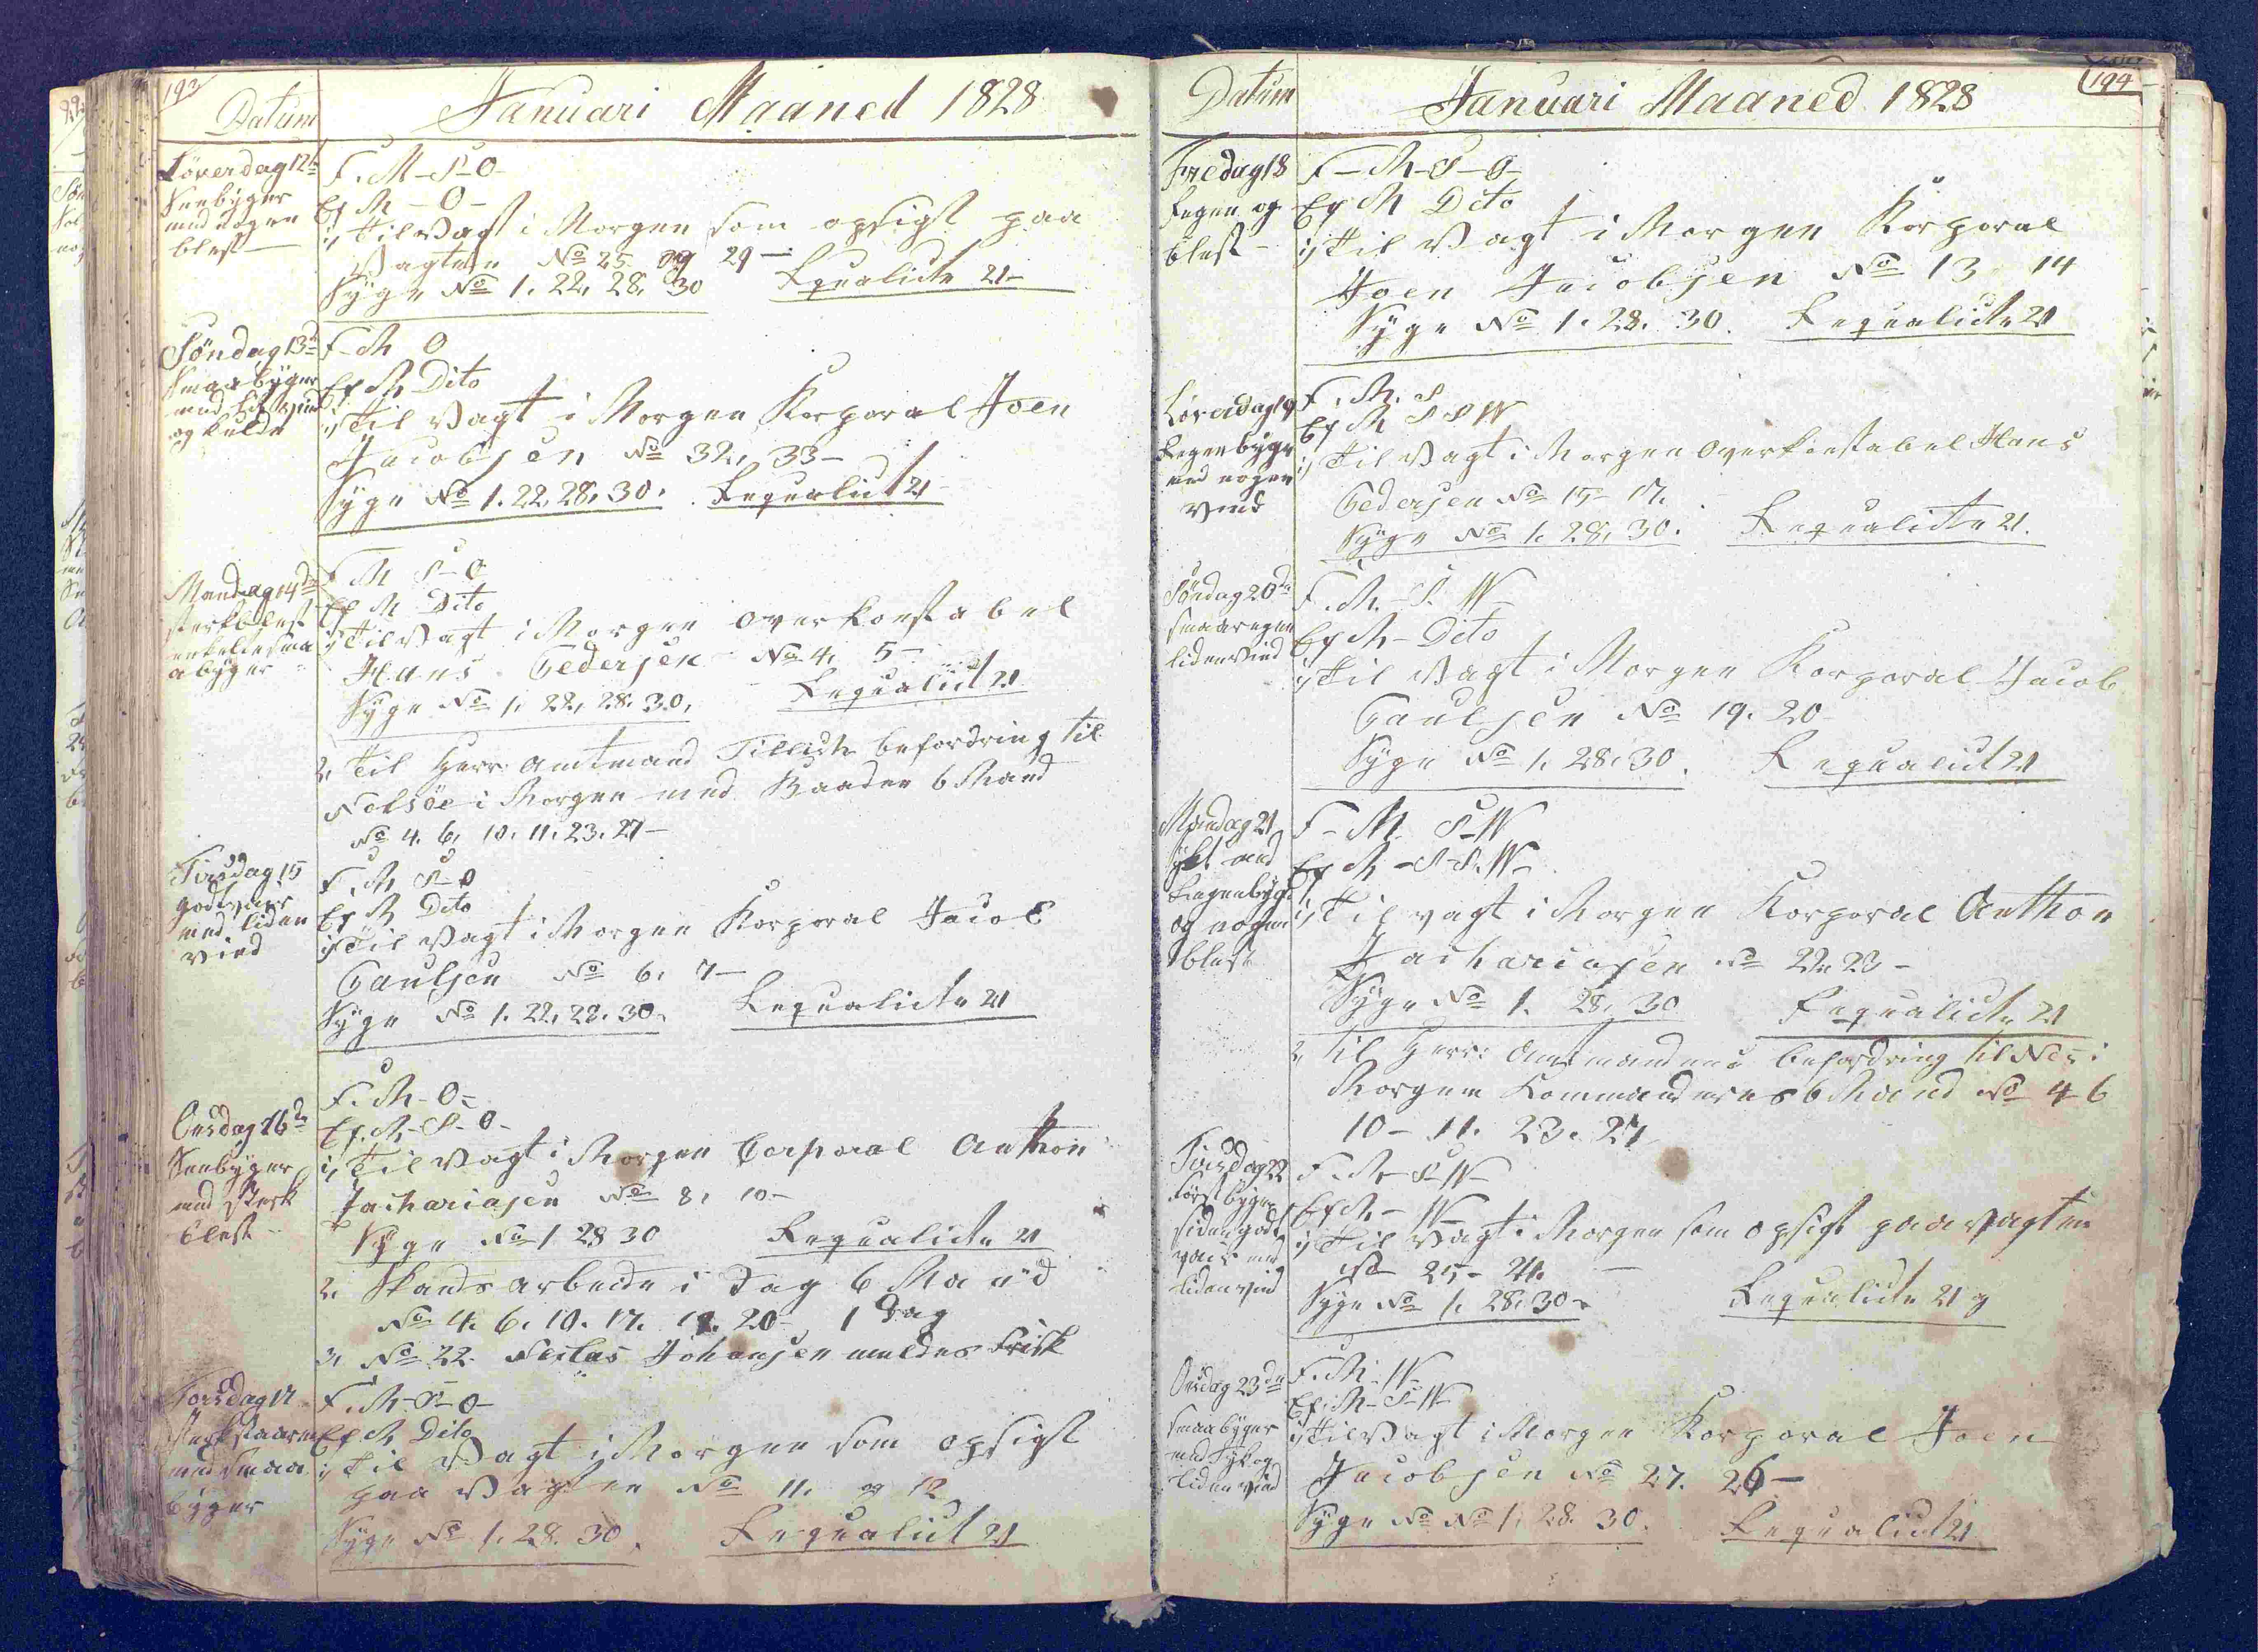 193
Datum
Januari Maaned 1828
Löverdag 12te
Sneebyger
med nogen
blest
F. M - S - O -
Ef M - O -
1, Til Vagt i Morgen som opsigt paa
Vagten No 25 og 29 -
Syge No 1. 22, 28, 30
Requalicte 21 -
Söndag 13de
Smaabyger
og kulde
F - M O
Ef M Dito
1, Til Vagt i Morgen Korporal Joen
Jacobsen No 32, 33 -
Syge No 1. 22, 28, 30.
Requalict 21 -
Mandag 14de
sterkblest
enkelte sma
abyger
F M S - O
Ef M Dito
1, Til Vagt i Morgen overkonstabel
Hans Pedersen No 4, 5 -
Syge No 1, 22, 28. 30,
Requalict 21
2, Til Herr: Amtmand Tillisch befordring til
Nolsöe i Morgen med Baaden 6 Mand
No 4. 6, 10. 11. 23. 27 -
Tirsdag 15
godtvair
med liden
vind
F. M S - O
Ef M Dito
1, Til Vagt i Morgen Korporal Jacob
Paulsen No 6, 7 -
Syge No 1. 22, 28. 30.
Requalicte 21
Onsdag 16de
Sneebyger
med sterk
blest -
F. M - O -
Ef. M - S - O -
1, Til Vagt i Morgen Corporal Anthon
Jachariasen No 8, 10 -
Syge No 1 28 30
Requalicte 21
2, Skands arbeide i Dag 6 Mand
No 4. 6. 10. 17. 19. 20 - 1 Dag
3, No 22 Johansen meldes Frisk
Torsdag 17
sterk staarm
med smaa
byger
F. M - S - O -
Ef M Dito
1, Til Vagt i Morgen som opsigt
paa Vagten No 11. og 12
Syge No 1. 28. 30.
Requalict 21
194
Datum
Januari Maaned 1828
Fredag 18
Regen og
blest -
F - M - S - O -
Ef M Dito
1, Til Vagt i Morgen Korporal
Joen Jacobsen No 13 14
Syge No 1. 28. 30.
Requalicte 21
Löverdag 19
Regenbyger
med nogen
vind
F. M. S
Ef M S S W
1, Til Vagt i Morgen overkonstabel Hans
Pedersen No 15 - 17.
Syge No 1. 28, 30.
Requalicte 21.
Söndag 20de
smaaregen
liden vind
F. M. - S. W -
Ef M - Dito
1, Til Vagt i Morgen Korporal Jacob
Paulsen No 19. 20 -
Syge No 1. 28. 30.
Requalict 21
Mandag 21
tykt med
Regenbyger
og nogen
blest
F - M. S - W
Ef M - S - S. W -
1, Til vagt i Morgen Korporal Anthon
Jachariasen No 22 23 -
Syge No 1. 28, 30
Requalicte 21
2, Til Herr: Amtmandens befordring til Nes i
Morgen Kommanderes 6 Mand No 4 - 6
10 - 11. 23. 27
Tirsdag 22
först byger
siden godt
vair med
liden vind
F. M - S - W -
Ef M - W -
1, Til Vagt i Morgen som opsigt paa vagten
No 25 - 24.
Syge No 1. 28. 30.
Requalicte 21
Onsdag 23de
smaabyger
med Tyk og
liden vind
F. M. - W -
Ef. M - S - W -
1, Til Vagt i Morgen Korporal Joen
Jacobsen No 27. 26 -
Syge No No 1, 28. 30.
Requalict 21